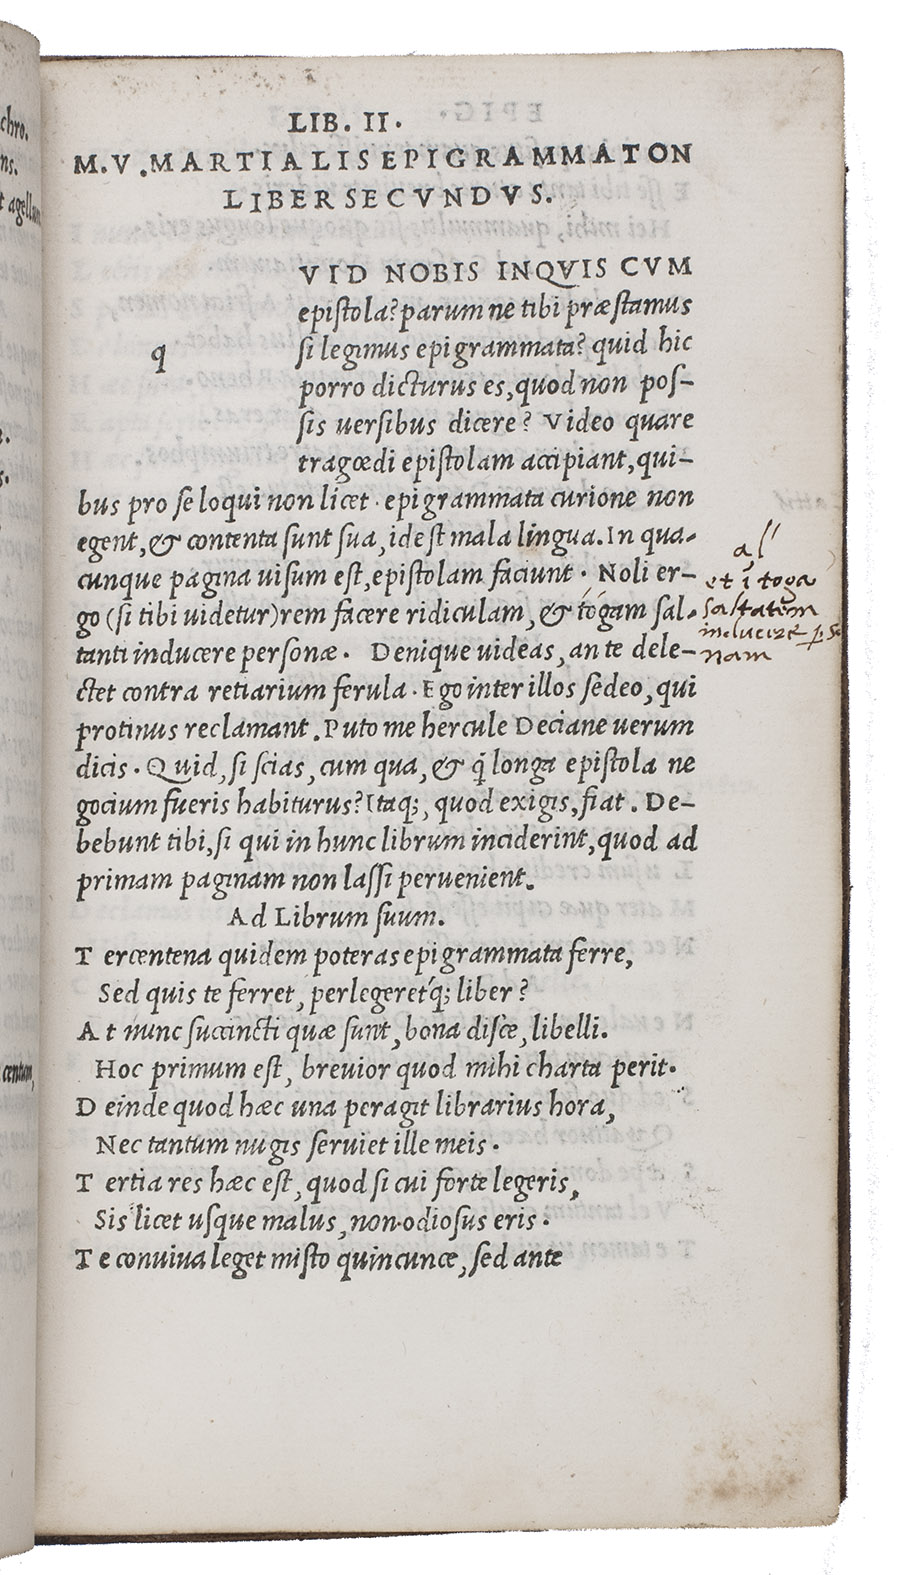 chro.
ns.
t agellum
centum,
LIB. II.
M.V.MARTIALIS EPIGRAMMATON
LIBER SECVNDVS.
q
VID NOBIS INQVIS CVM
epistola? parum ne tibi præstamus
si legimus epigrammata? quid hic
porro dicturus es, quod non pos-
sis uersibus dicere? Video quare
tragœdi epistolam accipiant, qui-
bus pro se loqui non licet. epigrammata curione non
egent, & contenta sunt sua, id est mala lingua. In qua-
cunque pagina uisum est, epistolam faciunt. Noli er-
go (si tibi uidetur) rem facere ridiculam, & togam sal-
tanti inducere personæ. Denique uideas, an te dele-
ctet contra retiarium ferula. Ego inter illos sedeo, qui
protinus reclamant. Puto me hercule Deciane uerum
dicis. Quid, si scias, cum qua, & q̃ longa epistola ne
gocium fueris habiturus? Itaq;, quod exigis, fiat. De-
bebunt tibi, si qui in hunc librum inciderint, quod ad
primam paginam non lassi peruenient.
Ad Librum suum.
T ercentena quidem poteras epigrammata ferre,
Sed quis te ferret, perlegeretq́; liber?
A t nunc succincti quæ sunt, bona disce, libelli.
Hoc primum est, breuior quod mihi charta perit.
D einde quod hæc una peragit librarius hora,
Nec tantum nugis seruiet ille meis.
T ertia res hæc est, quod si cui forte legeris,
Sis licet usque malus, non odiosus eris.
T e conuiua leget misto quincunce, sed ante
al
et ĩ toga
saltatem
inducere ꝑso
nam